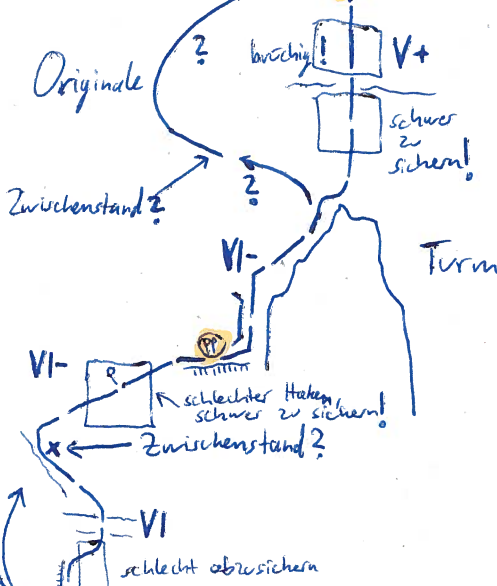 ?
brüchig!
V+
Originale
schwer
zu
sichern!
?
Zwischenstand?
VI-
Turm
PP
VI-
R
schlechter Haken,
schwer zu sichern!
x
Zwischenstand?
VI
schlecht abzusichern